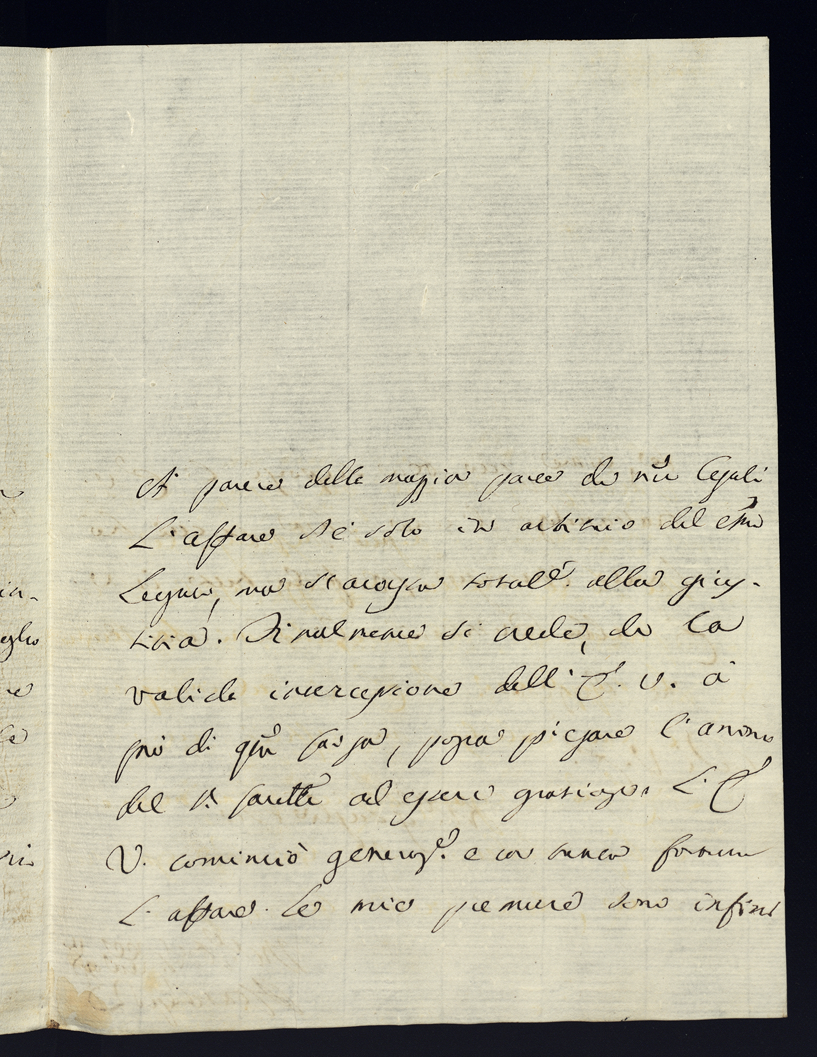 A parere della maggior parte de nri Legali
L'affare n'è solo in arbitrio del Emo
Legato, ma s'acosta totale. alla gius-
titia. Finalmente si crede, che la
valida intercessione dell' E. V. à
prò di qta causa, possa piegare l'animo
del Sr. ad essere grazioso. L'E.
V. cominciò generose. e con tanta fortuna
L'affare. Le mie premure sono infini